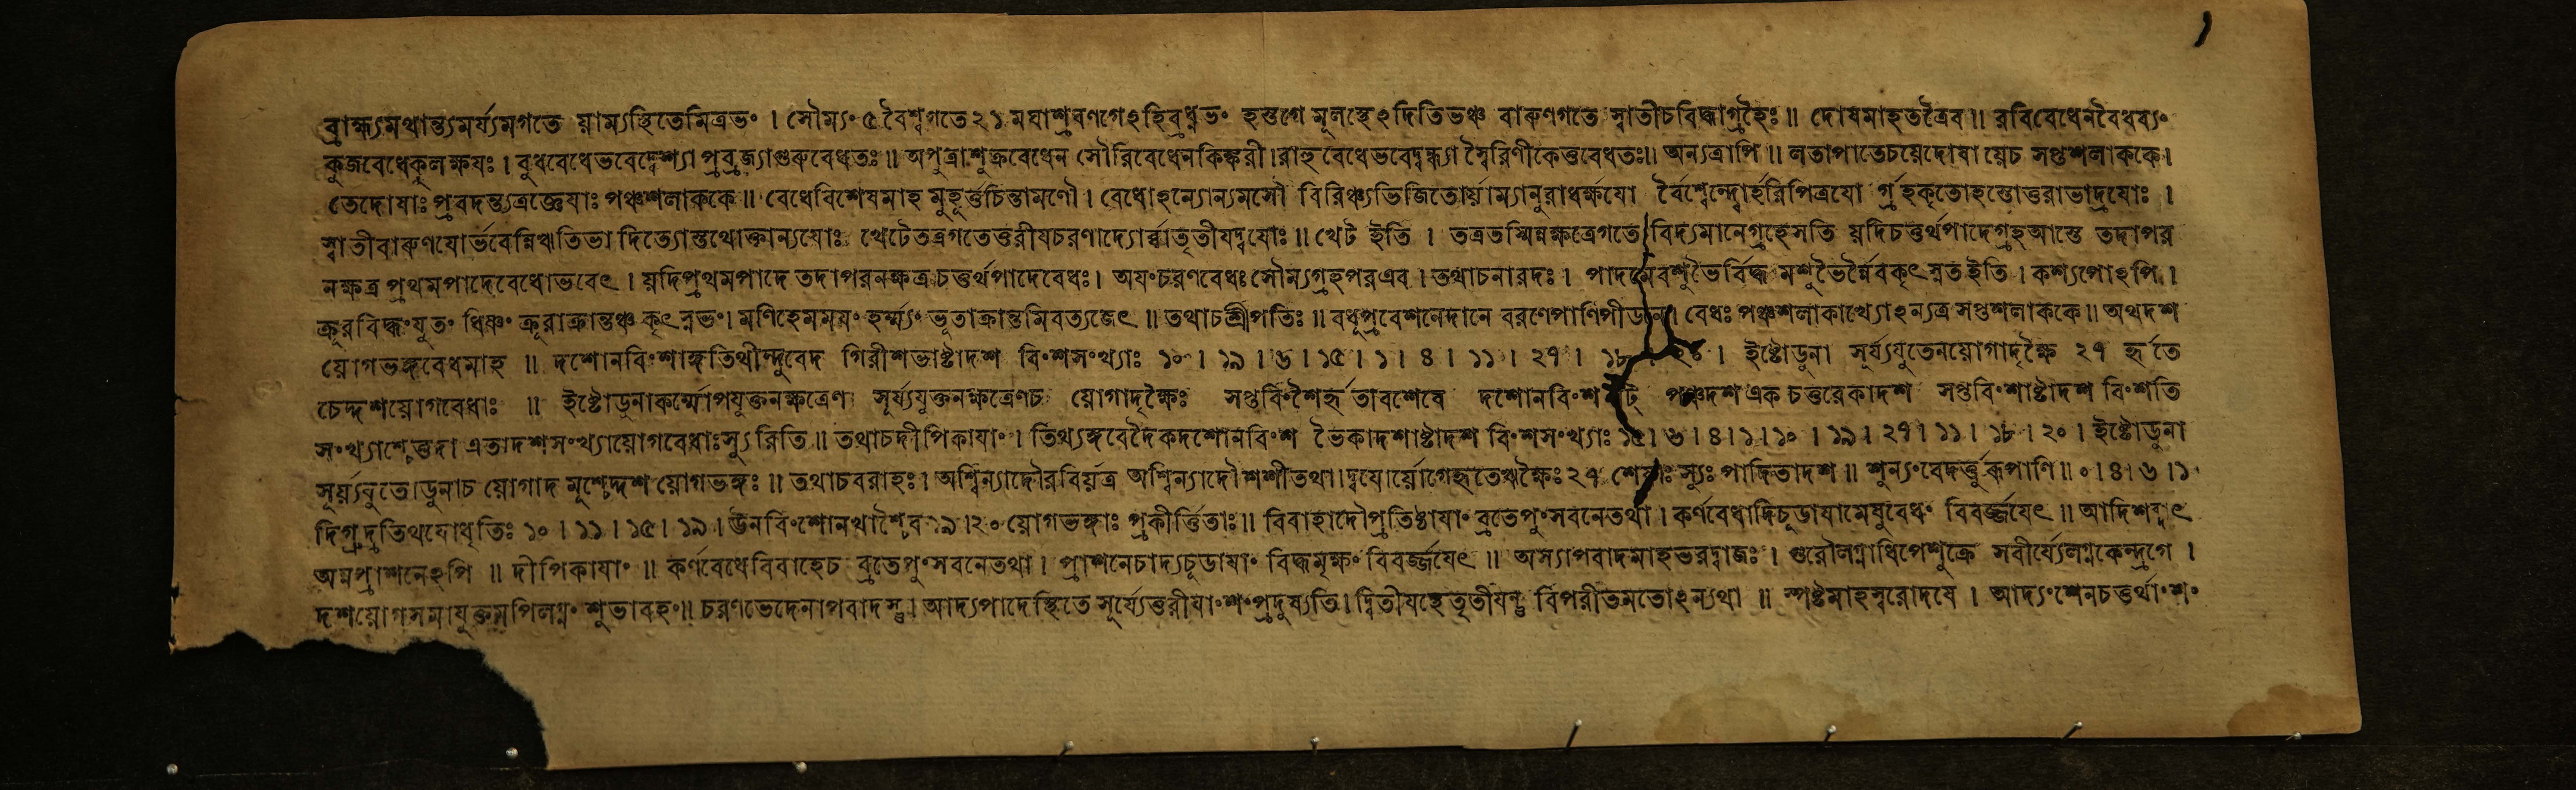 ব্রাহ্ম্যমথান্ত্যমর্য্যমগতে য়াম্যস্থিতেমিত্রভং । সৌম্যং ৫ বৈশ্বগতে ২১ মঘাশ্রবণগেঽহিব্রধ্নভং হস্তগে মূলস্থেঽদিতিভঞ্চ বারুণগতে স্বাতীচবিদ্ধাগ্রহৈঃ ॥ দোষমাহতত্রৈব ॥ রবিবেধেনবৈধব্যং
কুজবেধেকুলক্ষযঃ । বুধবেধেভবেদ্বেশ্যা প্রব্রজ্যাগুরুবেধতঃ ॥ অপুত্রাশুক্রবেধেন সৌরিবেধেনকিঙ্করী । রাহুবেধেভবেদ্বন্ধ্যা স্বৈরিণীকেতুবেধতঃ ॥ অন্যত্রাপি ॥ লতাপাতেচয়েদোষা য়েচ সপ্তশলাককে ।
তেদোষাঃ প্রবদন্ত্যত্রজ্ঞেযাঃ পঞ্চশলাককে ॥ বেধেবিশেষমাহ মুহূর্ত্তচিন্তামণৌ । বেধোঽন্যোন্যমসৌ বিরিঞ্চ্যভিজিতোর্য়াম্যানুরাধর্ক্ষযো র্বৈশ্বেন্দ্বোর্হরিপিত্রযো র্গ্রহকৃতোহস্তোত্তরাভাদ্রযোঃ ।
স্বাতীবারুণযোর্ভবেন্নিঋতিভা দিত্যোস্তথোক্তান্যযোঃ খেটেতত্রগতেতুরীযচরণাদ্যোর্ব্বাতৃতীযদ্বযোঃ ॥ খেট ইতি । তত্রতস্মিন্নক্ষত্রেগতে বিদ্যমানেগ্রহেসতি য়দিচতুর্থপাদেগ্রহআস্তে তদাপর
নক্ষত্র প্রথমপাদেবেধোভবেৎ । য়দিপ্রথমপাদে তদাপরনক্ষত্র চতুর্থপাদেবেধঃ । অযংচরণবেধঃ সৌম্যগ্রহপরএব । তথাচনারদঃ । পাদমেবশুভৈর্বিদ্ধ মশুভৈর্ন্নৈবকৃৎস্নতইতি । কশ্যপোঽপি ।
ক্রূরবিদ্ধংযুতং ধিষ্ণং ক্রূরাক্রান্তঞ্চ কৃৎস্নভং । মণিহেমময়ং হর্ম্ম্যং ভূতাক্রান্তমিবত্যজেৎ ॥ তথাচশ্রীপতিঃ ॥ বধূপ্রবেশনেদানে বরণেপাণিপীডনে । বেধঃ পঞ্চশলাকাখ্যোঽন্যত্র সপ্তশলাককে ॥ অথদশ
য়োগভঙ্গবেধমাহ ॥ দশোনবিংশাঙ্গতিথীন্দুবেদ গিরীশভাষ্টাদশ বিংশসংখ্যাঃ ১০ । ১৯ । ৬ । ১৫ । ১ । ৪ । ১১ । ২৭ । ১৮ । ২০ । ইষ্টোডুনা সূর্য্যযুতেনয়োগাদৃক্ষৈ ২৭ হৃতে
চেদ্দশয়োগবেধাঃ ॥ ইষ্টোডুনাকর্ম্মোপযুক্তনক্ষত্রেণ সূর্য্যযুক্তনক্ষত্রেণচ য়োগাদৃক্ষৈঃ সপ্তবিংশৈর্হৃতাবশেষে দশোনবিংশ ষট্ পঞ্চদশ এক চতুরেকাদশ সপ্তবিংশাষ্টাদশ বিংশতি
সংখ্যাশ্চেত্তদা এতাদশসংখ্যায়োগবেধাঃস্যুরিতি ॥ তথাচদীপিকাযাং । তিথ্যঙ্গবেদৈকদশোনবিংশ ভৈকাদশাষ্টাদশ বিংশসংখ্যাঃ ১৫ । ৬ । ৪ । ১ । ১০ । ১৯ । ২৭ । ১১ । ১৮ । ২০ । ইষ্টোডুনা
সূর্য়্যযুতোডুনাচ য়োগাদ মূশ্চেদ্দশ য়োগভঙ্গঃ ॥ তথাচবরাহঃ । অশ্বিন্যাদৌরবির্য়ত্র অশ্বিন্যাদৌশশীতথা । দ্বযোর্য়োগেহৃতেঋক্ষৈঃ ২৭ শেষাঃ স্যুঃ পাদিতাদশ ॥ শূন্যংবেদর্ত্তুরূপাণি ॥ ০ । ৪ । ৬ । ১
দিগ্রুদ্রতিথযোধৃতিঃ ১০ । ১১ । ১৫ । ১৯ । ঊনবিংশোনখাশ্চৈব ১৯ । ২০ য়োগভঙ্গাঃ প্রকীর্ত্তিতাঃ ॥ বিবাহাদৌপ্রতিষ্ঠাযাং ব্রতেপুংসবনেতথা । কর্ণবেধাদিচূডাযামেষুবেধং বিবর্জ্জযেৎ ॥ আদিশব্দাৎ
অন্নপ্রাশনেঽপি ॥ দীপিকাযাং ॥ কর্ণবেধেবিবাহেচ ব্রতেপুংসবনেতথা । প্রাশনেচাদ্যচূডাযাং বিদ্ধমৃক্ষং বিবর্জ্জযেৎ ॥ অস্যাপবাদমাহভরদ্বাজঃ । গুরৌলগ্নাধিপেশুক্রে সবীর্য্যেলগ্নকেন্দ্রগে ।
দশয়োগসমাযুক্তমপিলগ্নং শুভাবহং ॥ চরণভেদেনাপবাদস্তু । আদ্যপাদেস্থিতে সূর্য্যেতুরীযাংশংপ্রদুষ্যতি । দ্বিতীযস্থেতৃতীযন্তু বিপরীতমতোঽন্যথা ॥ স্পষ্টমাহস্বরোদযে । আদ্যংশেনচতুর্থাংশং